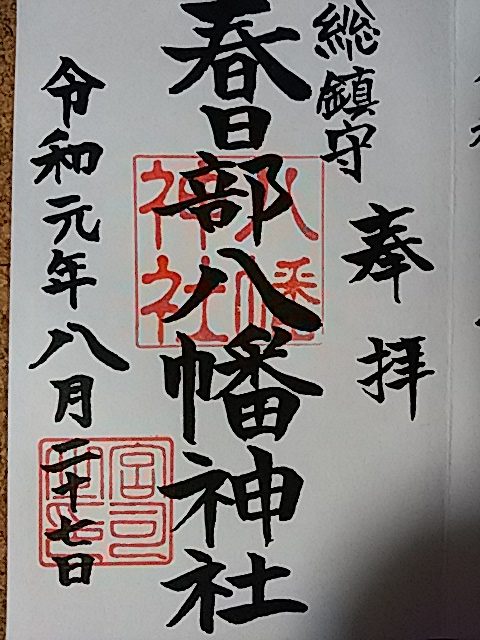 総鎮守
奉拝
春日部八幡神社
八幡
神社
令和元年八月二十七日
宮司